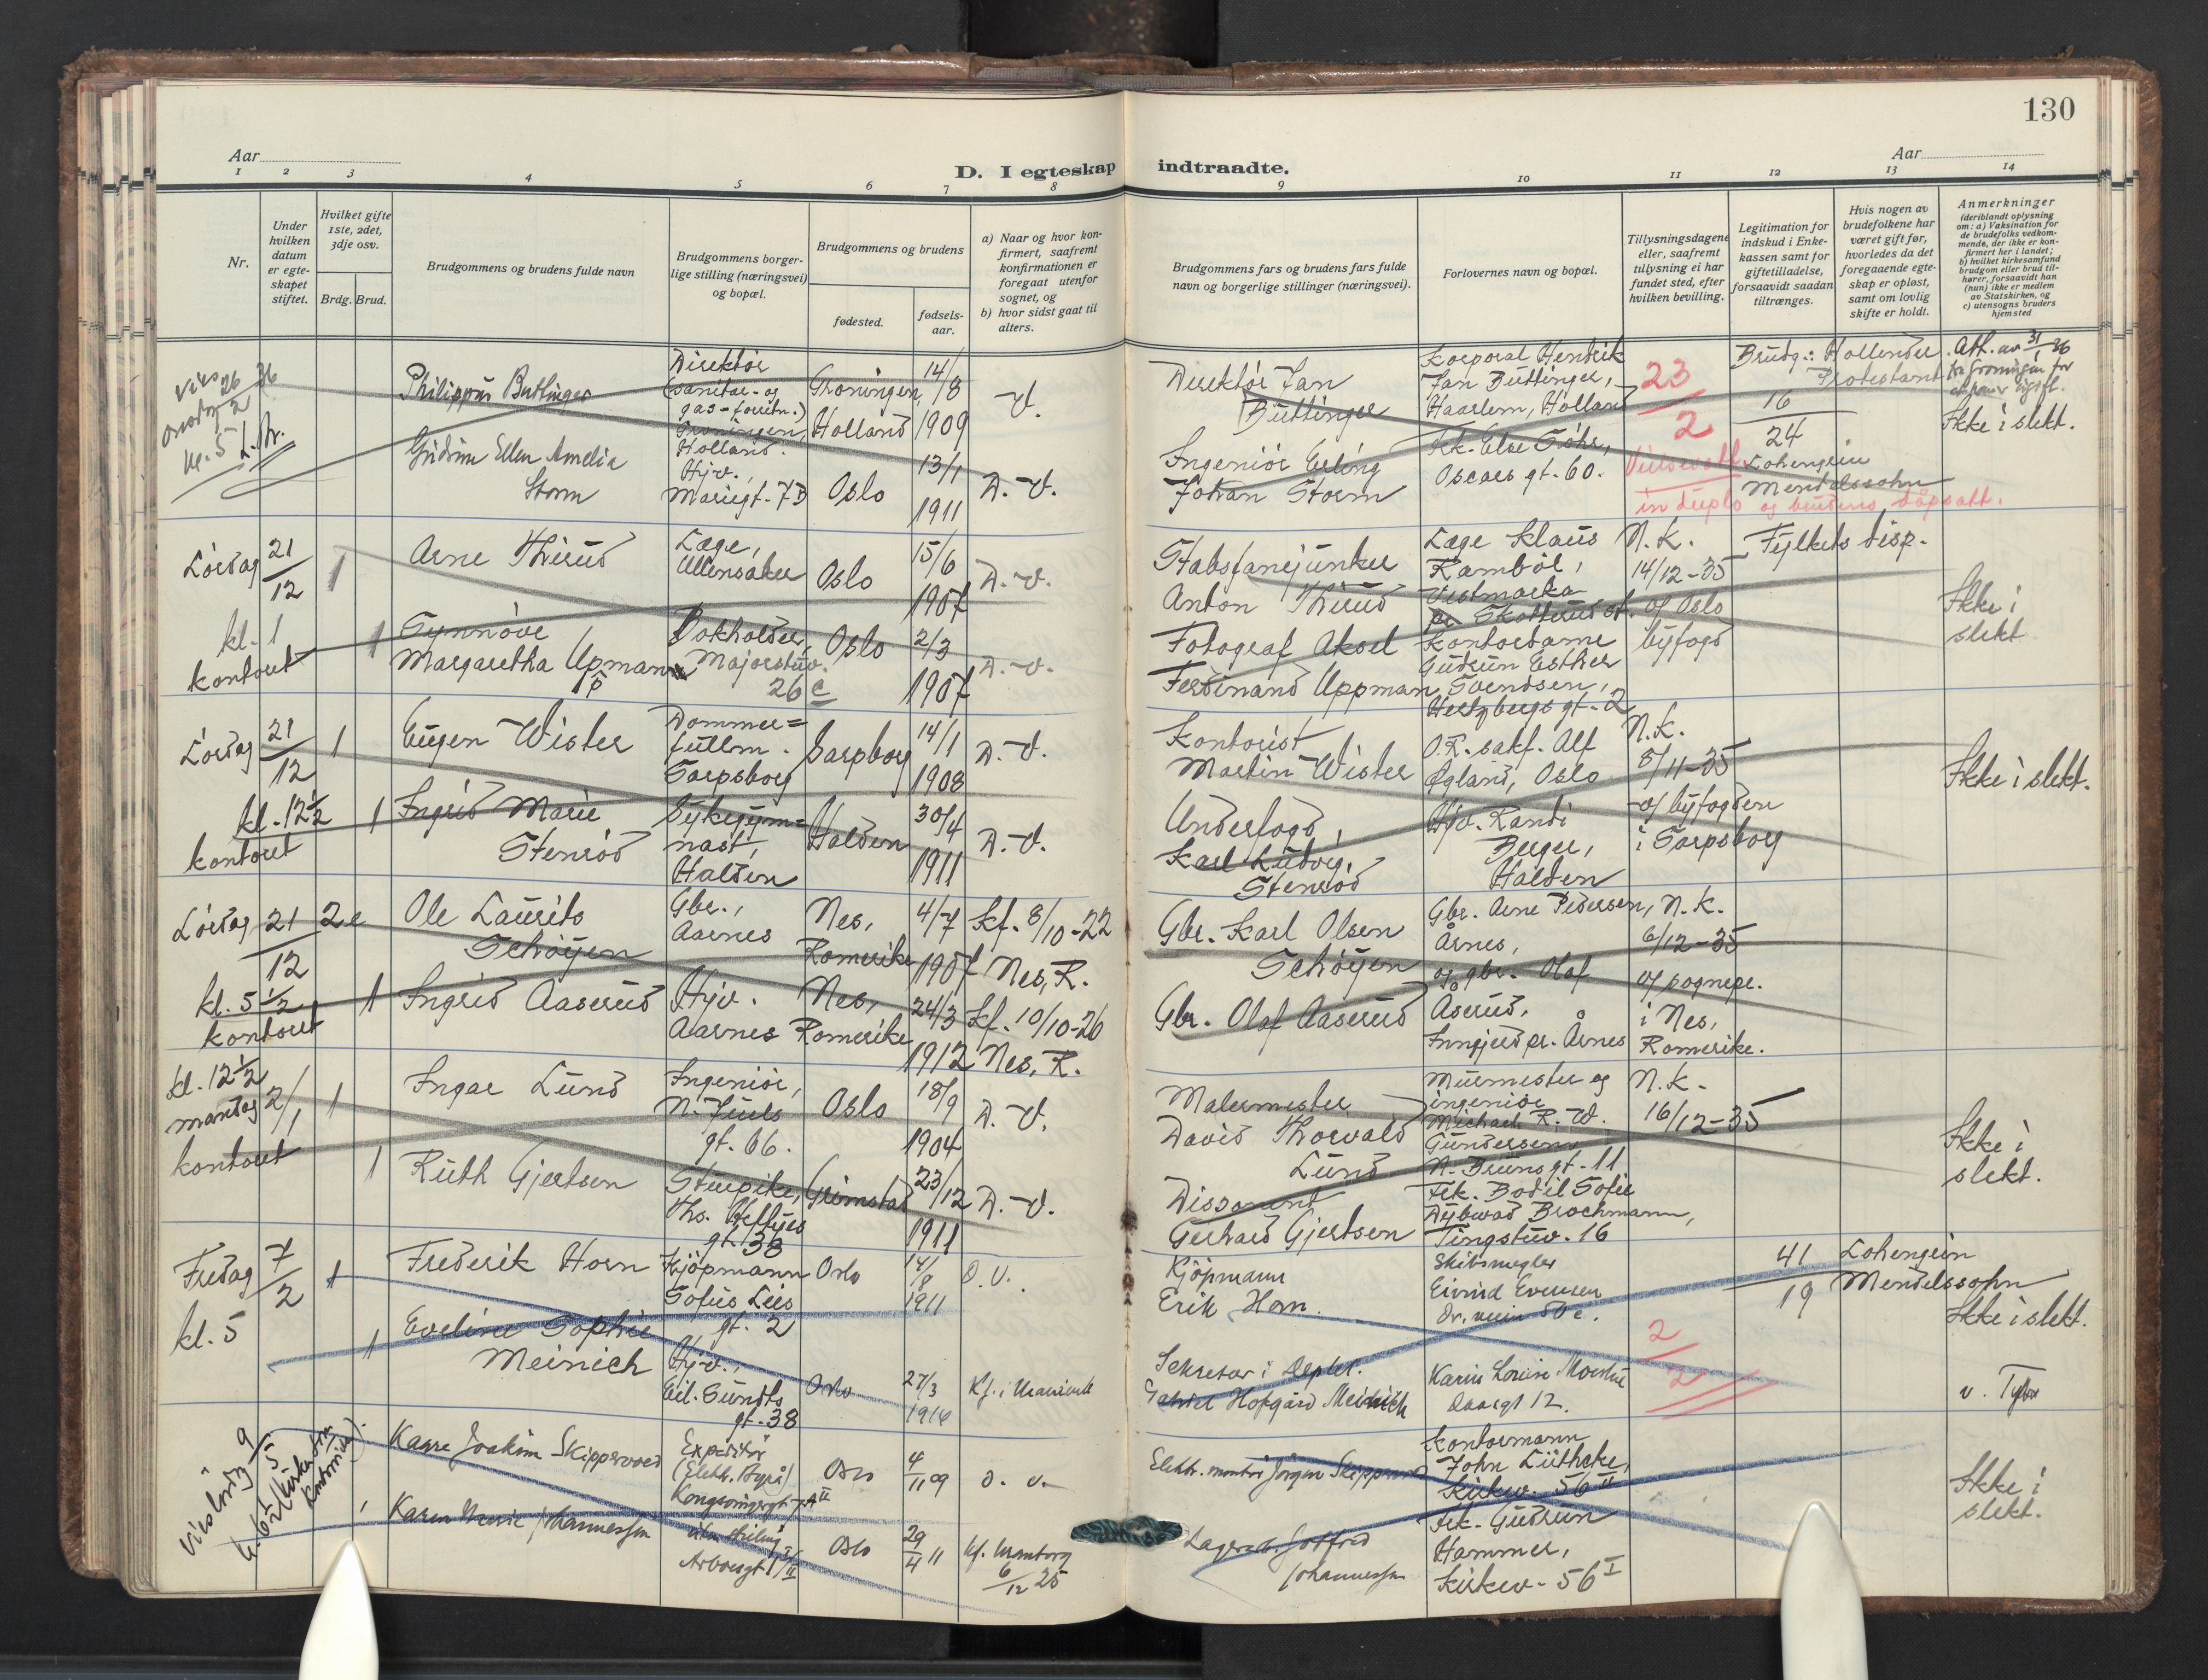 130
Aar
Aar
D. I egteskap indtraadte.
1 2 3 4 5 6 7 8 9 10 11 12 13 14
Nr.
Under hvilken datum er egteskapet stiftet.
Hvilket gifte 1ste, 2det, 3dje osv.
Brdg. Brud.
Brudgommens og brudens fulde navn
Brudgommens borgerlige stilling (næringsvei) og bopæl.
Brudgommens og brudens
fødested.
fødselsaar.
a) Naar og hvor konfirmert, saafremt konfirmationen er foregaat utenfor sognet, og
b) hvor sidst gaat til alters.
Brudgommens fars og brudens fars fulde navn og borgerlige stillinger (næringsvei).
Forlovernes navn og bopæl.
Tillysningsdagene eller, saafremt tillysning ei har fundet sted, efter hvilken bevilling.
Legitimation for indskud i Enkekassen samt for giftetilladelse, forsaavidt saadan tiltrænges.
Hvis nogen av brudefolkene har været gift før, hvorledes da det foregaaende egteskap er opløst, samt om lovlig skifte er holdt.
Anmerkninger
(deriblandt oplysning om: a) Vaksination for de brudefolks vedkommende, der ikke er konfirmert her i landet; b) hvilket kirkesamfund brudgom eller brud tilhører, forsaavidt han (hun) ikke er medlem av Statskirken, og c) utensogns bruders hjemsted
Vies
onsdag 26/2 36
kl. 5
Philippus Buttinger
Direktör
(sanitær- og
gas-forretn.)
Groningen,
Holland.
Groningen,
Holland
14/8
1909
V.
Direktör Jan
Buttinger
Korporal Hendrik
Jan Buttinger,
Haarlem, Holland
23
2
Brudg.: Hollender.
Protestant
16
24
Att. av 31/ 36
fra Groningen for
Ikke i slekt.
Gudrun Ellen Amelia
Storm
Hjv.,
Mariegt. 7 B
Oslo
13/1
1911
D. V.
Ingeniör Erling
Johan Storm
Frk. Else
Oscars gt. 60.
Vielsesatt.
in duplo og brudens dåpsatt.
Lohengrin
Mendelssohn
Lördag 21/12
kl. 1
kontoret
1
Arne Thirud
Læge,
Ullensaker
Oslo
15/6
1907
D. V.
Stabsfanejunker
Anton Thirud
Læge Klaus
Ramböl,
Vestmarka
pr. Skotterud st.
N. K.
14/12-35
of Oslo
byfogd
Fylkets disp.
Ikke i
slekt
1
Synnöve
Margaretha Upmann
p
Bokholder,
Majorstuv.
26 c
Oslo
2/3
1907
D. V.
Fotograf Aksel
Ferdinand Uppman
Kontordame
Gudrun Esther
Svendsen,
Hertzbergs gt. 2
Lördag 21/12
kl. 12½
kontoret
1
Eugen Wister
Dommer=
fullm.
Sarpsborg
Sarpsborg
14/1
1908
D. V.
Kontorist
Martin Wister
O.R. sakf. Alf
Øgland, Oslo
N. K.
8/11-35
of byfogden
i Sarpsborg
Ikke i slekt.
1
Ingrid Marie
Stenröd
Sykegym=
nast,
Halden
Halden
30/4
1911
D. V.
Underfogd,
Karl Ludvig,
Stenröd
Hjv. Randi
Berger,
Halden
Lördag 21/12
kl. 5½
kontoret
2e
Ole Laurits
Schöyen
Gbr.,
Aarnes
Nes,
Romerike
4/7
1907
Kf. 8/10-22
Nes, R.
Gbr. Karl Olsen
Schöyen
Gbr. Arne Pedersen,
Årnes,
og gbr. Olaf
Åserud,
pr. Årnes
N. K.
6/12-35
of sognepr.
i Nes,
Romerike.
1
Ingrid Aaserud
Hjv.
Aarnes
Nes,
Romerike
24/3
1912
Kf. 10/10-26
Nes, R.
Gbr. Olaf Aaserud
kl. 12½
mandag 2/1
kontoret
1
Ingar Lund
Ingeniör,
N. Juels
gt. 66.
Oslo
18/9
1904
D. V.
Malermester
David Thorvald
Lund
Murmester og
ingeniör
Michael R. W.
Gundersen
N. Bruns gt. 11
N. K.
16/12-35
Ikke i
slekt.
1
Ruth Gjertsen
Sturpike,
Ths. Heftyes
gt. 38
Grimstad
23/12
1911
D. V.
Disponent
Gerhard Gjertsen
Frk. Bodil Sofie
Dybwad Brochmann,
Tingstuv. 16
Fredag 7/2
kl. 5
1
Frederik Horn
Kjöpmann
Sofus Lies
gt. 2
Oslo
14/8
1911
D. V.
Kjöpmann
Erik Horn.
Skibsmegler
Eivind Evensen
2/2
41
19
Lohengrin
Mendelssohn
Ikke i slekt.
1
Eveline Sophie
Meinich
Hjv.,
Eil. Sundts
gt. 38
Oslo
27/3
1916
Kf. i Uranienb
Sekretær i
Hofgård Meinich
Karin Louise
12.
9/5
Kaare Joakim Skipperoed
Expeditör
Kongsvingergt. 7 A II
Oslo
4/11 09
D. V.
Elektr. montör Jörgen
Kontormann
John Lüthcke,
Kirkev. 56 II
Ikke i
slekt.
1
Karen Marie Johannessen
Oslo
29/4 11
Kf.
6/12 25
Gotfred
Johannessen
Frk. Gudrun
Hammer,
Kirkev. 56 I